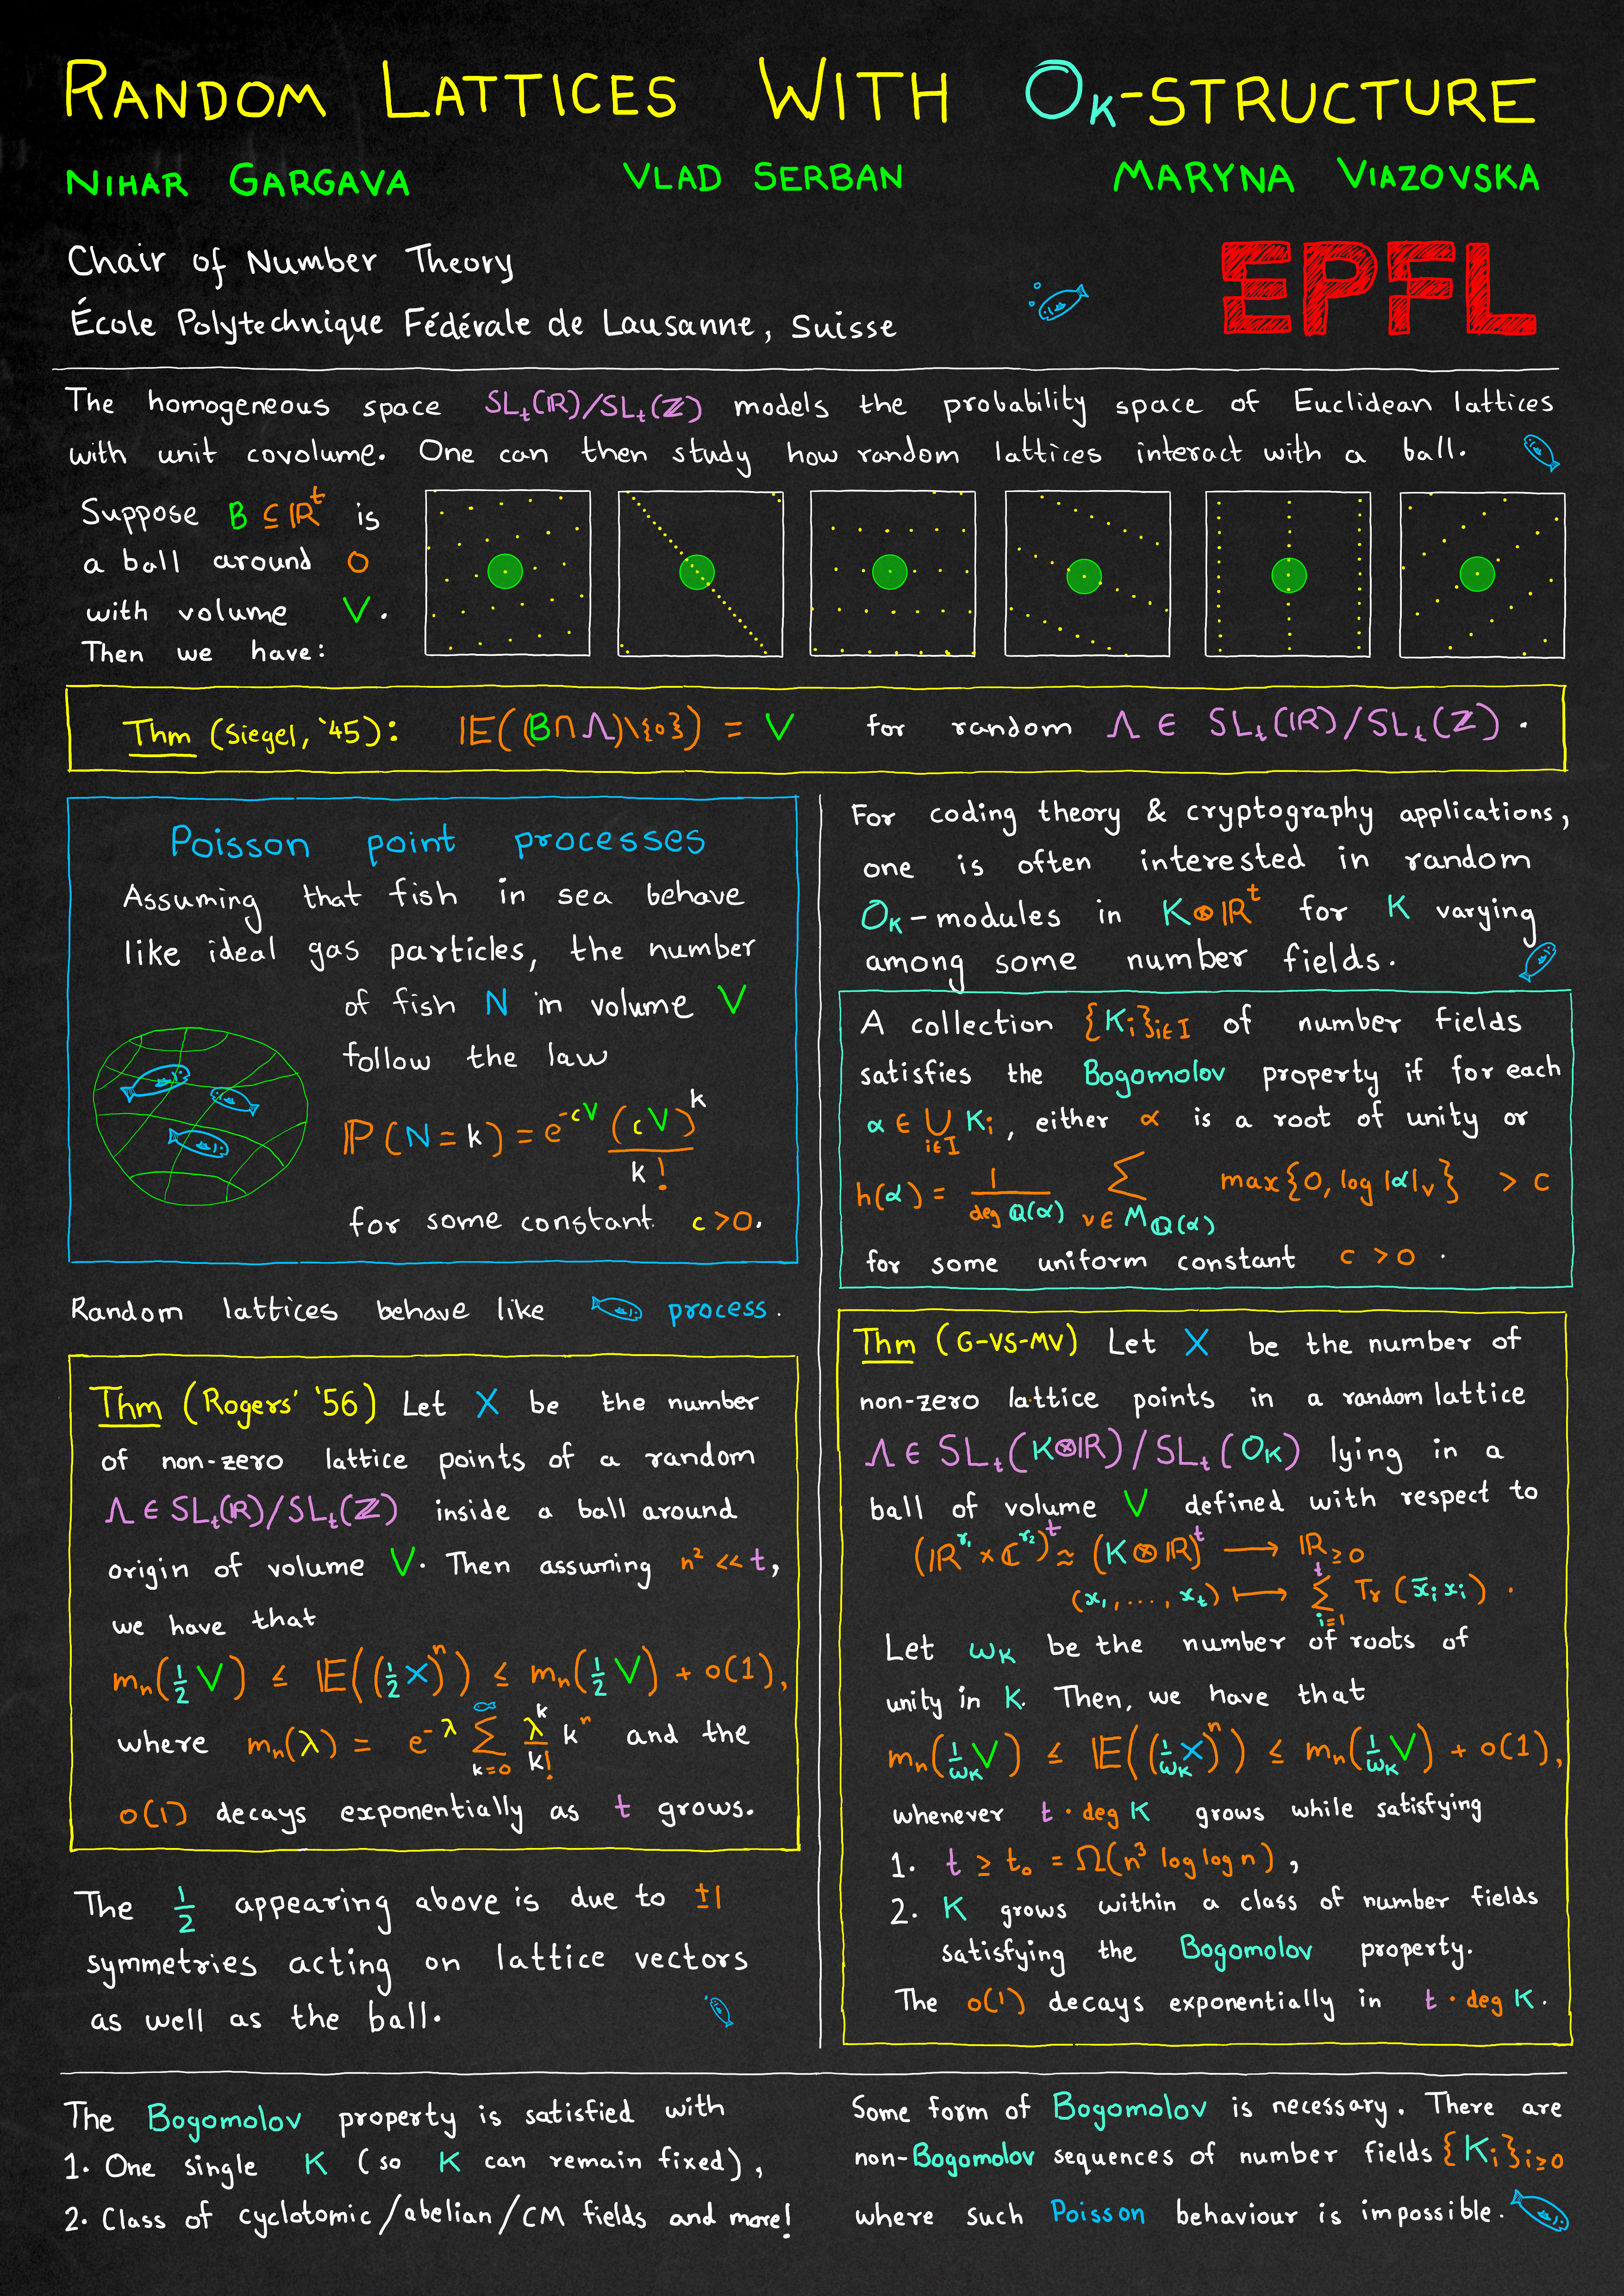 RANDOM LATTICES WITH O_K-STRUCTURE
NIHAR GARGAVA VLAD SERBAN MARYNA VIAZOVSKA
Chair of Number Theory
École Polytechnique Fédérale de Lausanne, Suisse
EPFL
The homogeneous space SL_t(ℝ)/SL_t(ℤ) models the probability space of Euclidean lattices
with unit covolume. One can then study how random lattices interact with a ball.
Suppose B ⊆ ℝ^t is
a ball around 0
with volume V.
Then we have:
Thm (Siegel, '45): 𝔼((B∩Λ)\{0}) = V for random Λ ∈ SL_t(ℝ)/SL_t(ℤ).
Poisson point processes
Assuming that fish in sea behave
like ideal gas particles, the number
of fish N in volume V
follow the law
ℙ(N=k) = e^{-cV} (cV)^k / k!
for some constant c>0.
Random lattices behave like process.
Thm (Rogers' '56) Let X be the number
of non-zero lattice points of a random
Λ ∈ SL_t(ℝ)/SL_t(ℤ) inside a ball around
origin of volume V. Then assuming n² << t,
we have that
m_n(½V) ≤ 𝔼((½X)^n) ≤ m_n(½V) + o(1),
where m_n(λ) = e^{-λ} ∑_{k=0}^{∞} λ^k/k! k^n and the
o(1) decays exponentially as t grows.
The ½ appearing above is due to ±1
symmetries acting on lattice vectors
as well as the ball.
For coding theory & cryptography applications,
one is often interested in random
O_K-modules in K⊗ℝ^t for K varying
among some number fields.
A collection {K_i}_{i∈I} of number fields
satisfies the Bogomolov property if for each
α ∈ ∪_{i∈I} K_i, either α is a root of unity or
h(α) = 1/deg ℚ(α) ∑_{v∈M_{ℚ(α)}} max{0, log |α|_v} > c
for some uniform constant c > 0.
Thm (G-VS-MV) Let X be the number of
non-zero lattice points in a random lattice
Λ ∈ SL_t(K⊗ℝ)/SL_t(O_K) lying in a
ball of volume V defined with respect to
(ℝ^{r_1} × ℂ^{r_2})^t ≈ (K⊗ℝ)^t → ℝ_{≥0}
(x_1, ..., x_t) ↦ ∑_{i=1}^{t} Tr(x̄_i x_i).
Let ω_K be the number of roots of
unity in K. Then, we have that
m_n(1/ω_K V) ≤ 𝔼((1/ω_K X)^n) ≤ m_n(1/ω_K V) + o(1),
whenever t · deg K grows while satisfying
1. t ≥ t_0 = Ω(n³ log log n),
2. K grows within a class of number fields
satisfying the Bogomolov property.
The o(1) decays exponentially in t · deg K.
The Bogomolov property is satisfied with
1. One single K (so K can remain fixed),
2. Class of cyclotomic/abelian/CM fields and more!
Some form of Bogomolov is necessary. There are
non-Bogomolov sequences of number fields {K_i}_{i≥0}
where such Poisson behaviour is impossible.